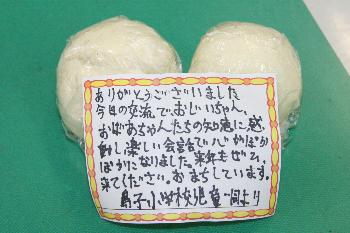 ありがとうございました
今日の交流で、おじいちゃん、
おばあちゃんたちの知恵に感
動し楽しい会話で心がぽか
ぽかになりました。来年もぜひ、
来てください。おまちしています。
小学校児童一同より